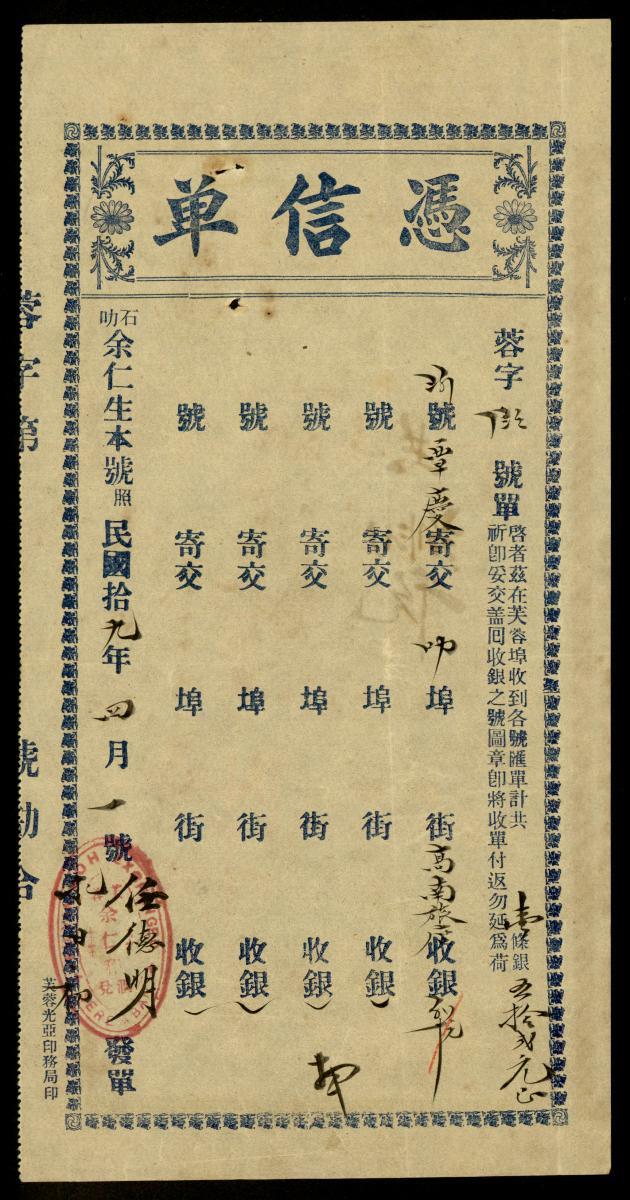 憑信单
蓉字 號單
啓者茲在芙蓉埠收到各號匯單計共壹條銀五拾弍元正
祈卽妥交盖囘收銀之號圖章卽將收單付返勿延爲荷
號章慶寄交叻埠 街髙南旅店收銀
號 寄交 埠 街 收銀
號 寄交 埠 街 收銀
號 寄交 埠 街 收銀
號 寄交 埠 街 收銀
石叻余仁生本號照
民國拾九年四月一號任德明發單
芙蓉光亞印務局印
蓉字第 號勘合
余仁